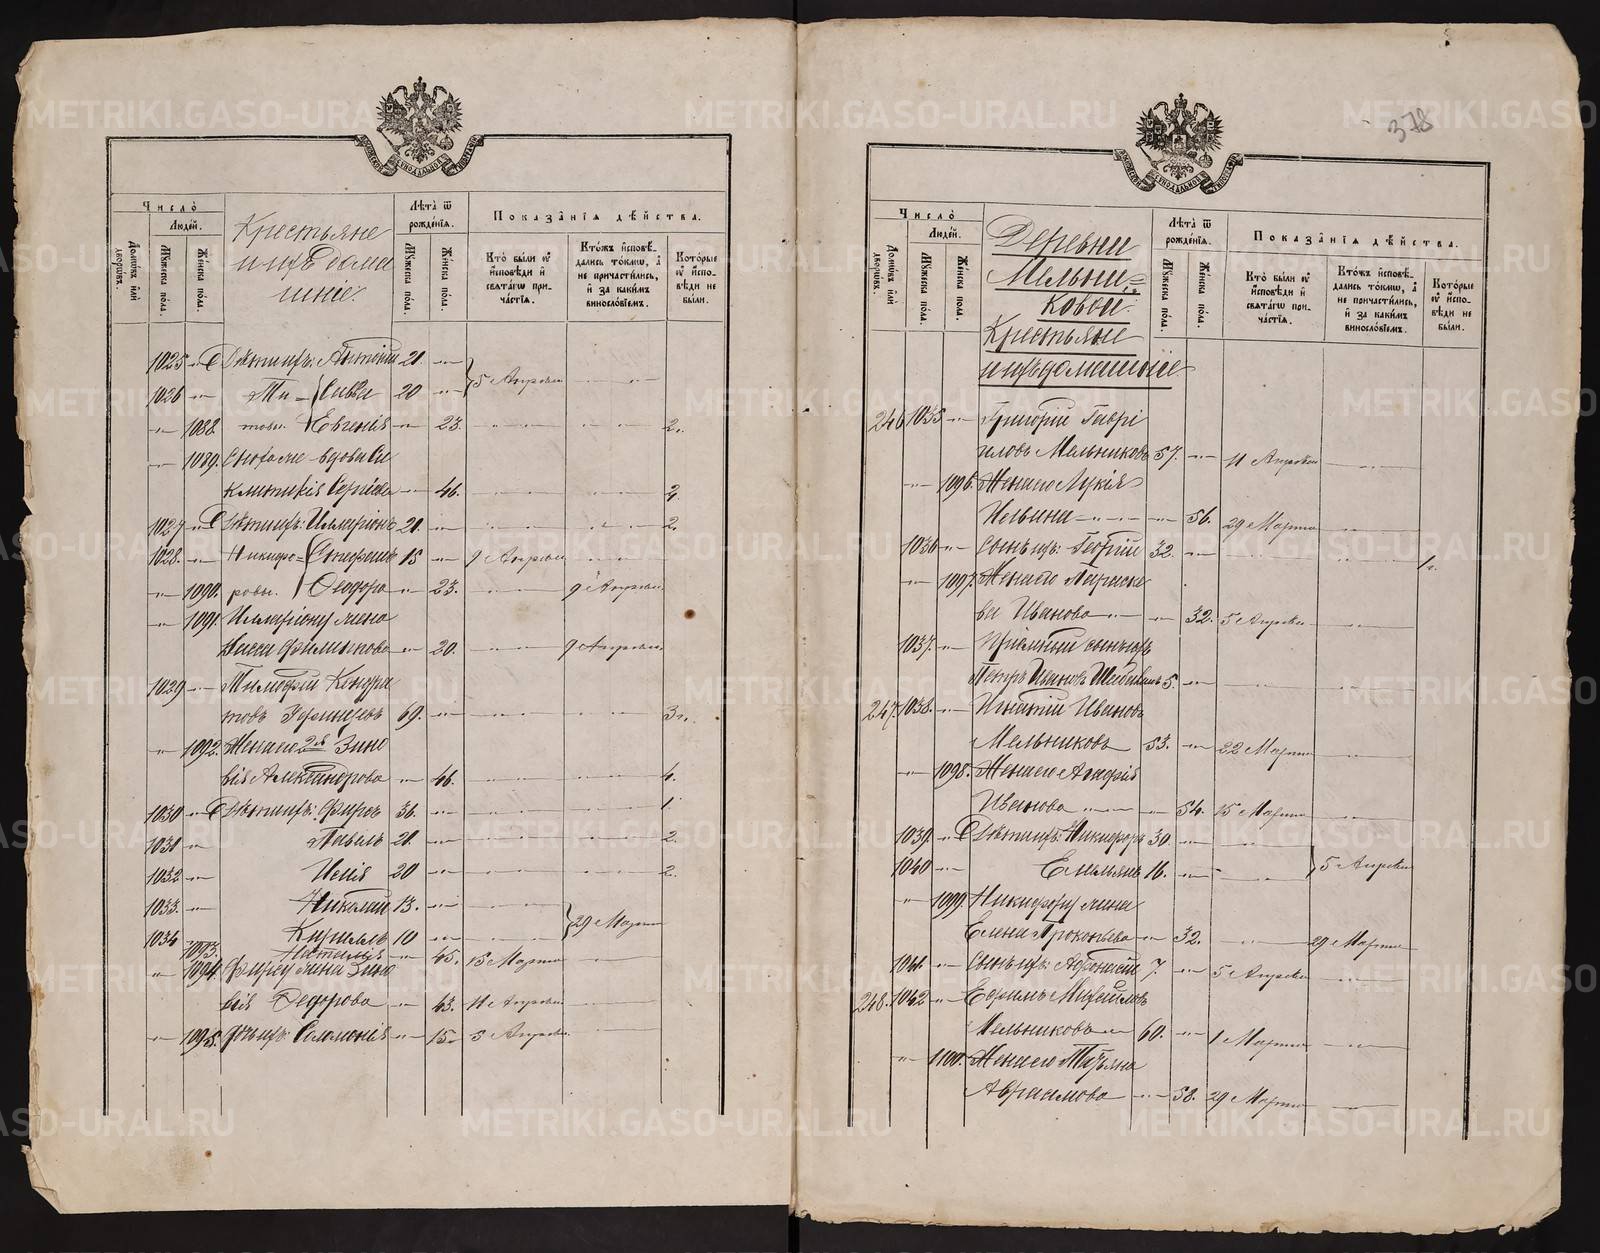 378
Число̀
Людей.
Домѡвъ или дворѡвъ.
Мꙋжеска пола.
Женска пола.
Крестьяне
и ихъ дома
шніе.
Лѣта ѿ
рожденїѧ.
Мꙋжеска пола.
Женска пола.
Показанїѧ дѣйства.
Кто были оу исповѣди и свѧтагѡ причастїѧ.
Ктожъ исповѣдались токмѡ, а не причастились, и за какимъ винословїемъ.
Которые оу исповѣди не были.
1025 -"- Дѣти ихъ: Антоній 21. -"-
5 Апрѣля
1026 -"- Ти- Савва 20 -"-
-"- 1088. товы. Евгенія -"- 23. 2.
-"- 1089. вдова
Сергіева -"- 46. 2.
1027 -"- Дѣти ихъ: Илларіонъ 21. -"- 2.
1028. -"- Никифо- 18 -"- 9 Апрѣля
-"- 1090. ровы. Ѳеодора -"- 23. 9 Апрѣля
-"- 1091. Илларіону жена
-"- 20. 9 Апрѣля
1029 -"- Тимофей Кондра
товъ 69. -"- 3.
-"- 1092. Жена его 2я Зино
вія Александрова -"- 46. 4.
1030 -"- Дѣти ихъ: Фирсъ 36. -"- 1
1031 -"- Павелъ 21. -"- 2.
1032 -"- 20 -"- 2.
1033. -"- Николай 13. -"-
29 Марта
1034 -"- Кириллъ 10 -"-
1093. Наталія -"- 45. 15 Марта
-"- 1094. Фирсу жена Зино
вія Ѳедорова -"- 43. 11 Апрѣля
-"- 1095. Дочь ихъ: Соломонія -"- 15. 5 Апрѣля
Число̀
Людей.
Домѡвъ или дворѡвъ.
Мꙋжеска пола.
Женска пола.
Деревни
Мельни=
ковой.
Крестьяне
и ихъ домашніе.
Лѣта ѿ
рожденїѧ.
Мꙋжеска пола.
Женска пола.
Показанїѧ дѣйства.
Кто были оу исповѣди и свѧтагѡ причастїѧ.
Ктожъ исповѣдались токмѡ, а не причастились, и за какимъ винословїемъ.
Которые оу исповѣди не были.
246 1035 -"- Григорій Гаврі
иловъ Мельниковъ 57. -"- 11 Апрѣля
-"- 1096. Жена его Лукія
Ильина -"- 56. 29 Марта
1036 -"- Сынъ ихъ: Георгій 32. -"- 1.
-"- 1097. Жена его Параске
ва Иванова -"- 32. 5 Апрѣля
1037. -"- Пріемный сынъ ихъ
Петръ Ивановъ 5. -"-
247. 1038. -"- Игнатій Ивановъ
Мельниковъ 53. -"- 22 Марта
-"- 1098. Жена его Агафія
Иванова -"- 54. 15 Марта
1039. -"- Дѣти ихъ: Никифоръ 30. -"-
5 Апрѣля
1040 -"- Емельянъ 16. -"-
-"- 1099. Никифору жена
Елена Прокопьева -"- 32. 29 Марта
1041. -"- Сынъ ихъ: Аѳанасій 7. -"- 5 Апрѣля
248. 1042 -"- Ефимъ Михайловъ
Мельниковъ 60. -"- 1 Марта
-"- 1100. Жена его Татьяна
Авраамова -"- 58. 29 Марта
METRIKI.GASO-URAL.RU